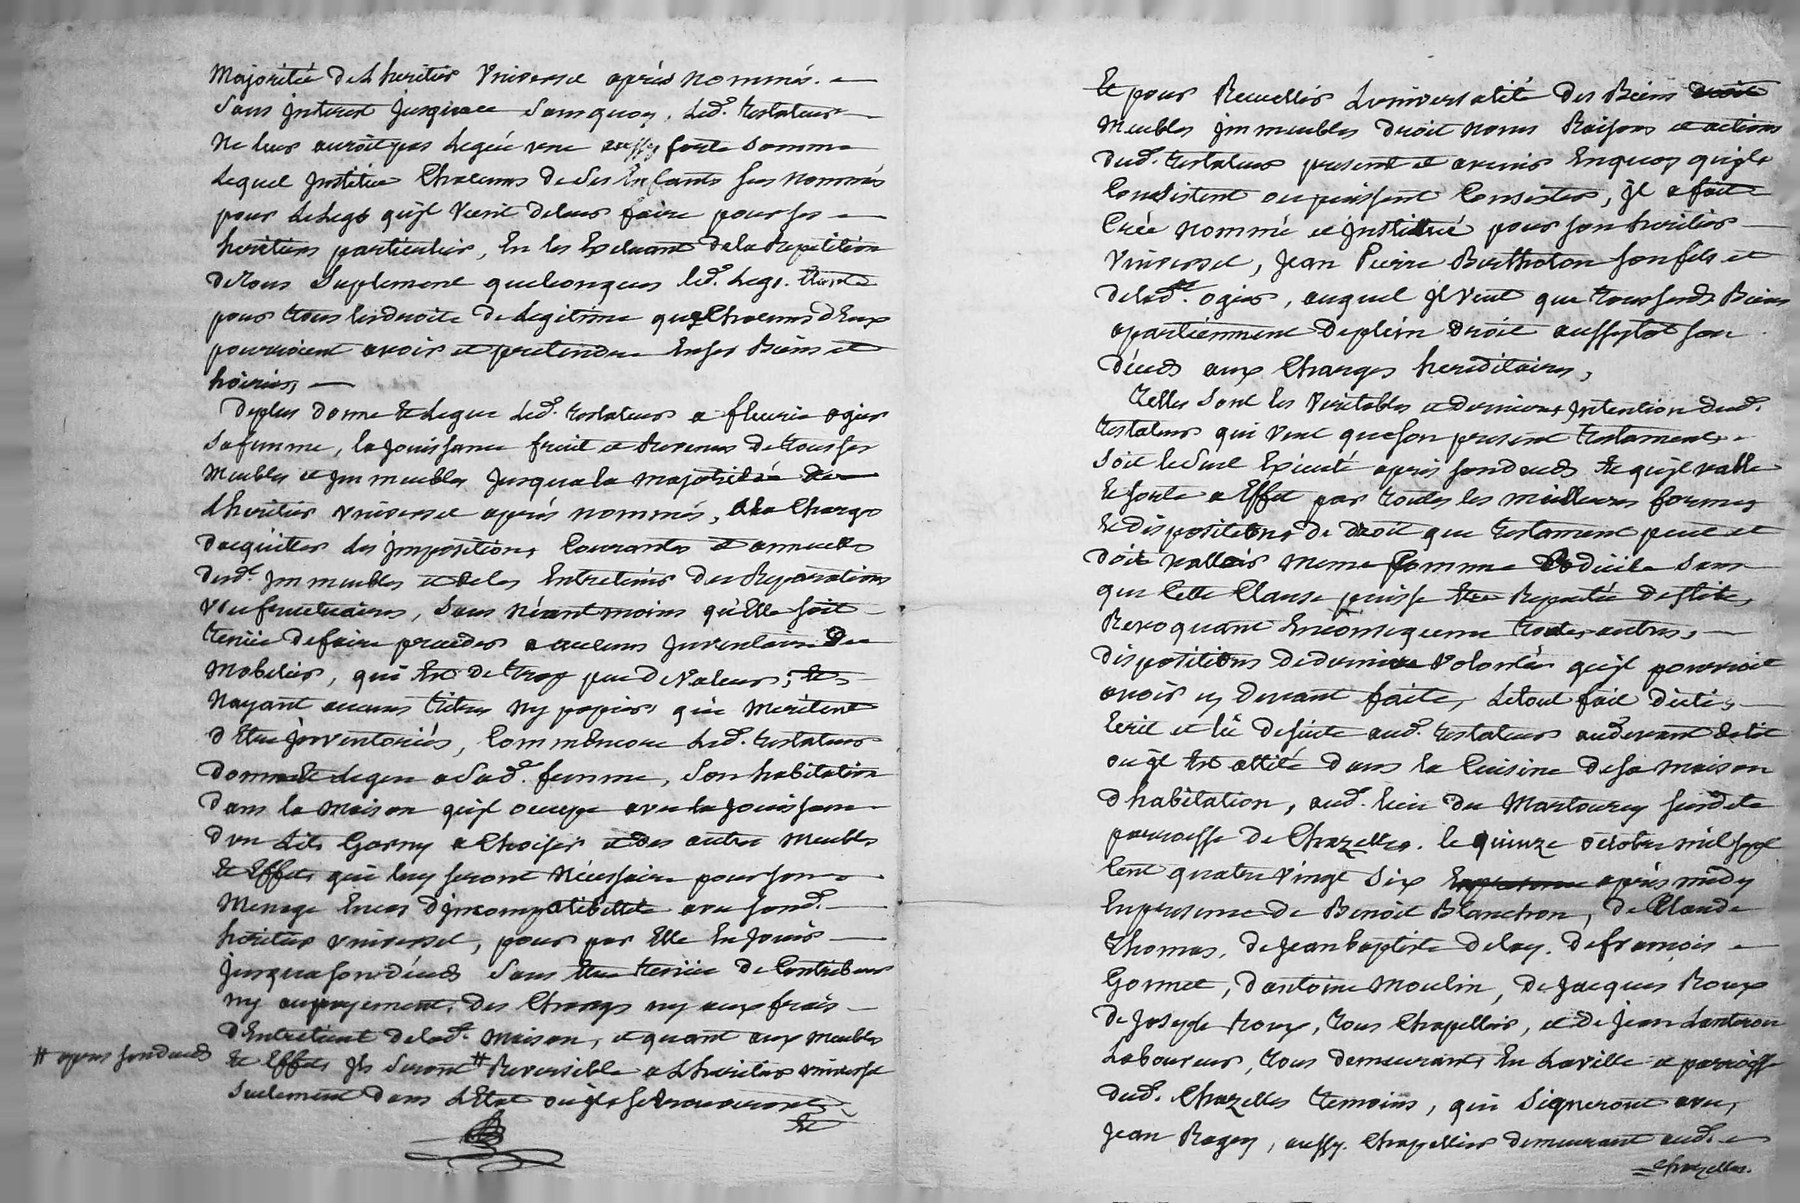 Majoritée de Lheritier Universel après nommés. -
Sans Interest Jusqu'alors Sans quoy, Led. testateur
Ne leur auroit pas Leguée une aussy forte Somme
Lequel Institue Chacuns de Ses Enfants sus nommés
pour Le Legs qu'jl vient de leur faire pour ses -
heritiers particulier, En les Excluant de la Repetition
de tous Suplement quelconques led. Legs. tiendra
pour tous les droits de Legitime que Chacuns d'Eux
pourroient avoir et pretendre En ses Biens et
hoiries, -
De plus donne Et Legue Led. testateur a fleurie ogier
Sa femme, la Jouissance fruit et Revenus de tous ses
Meubles et Immeubles Jusqua la majoritée de
Lheritier Universel après nommés, a la Charge
dacquitter Les Impositions Courantes et annuelles
desd. Immeubles et de les Entretenir des Reparations
Usufructuaires, Sans Néantmoins qu'Elle soit
tenüe de faire proceder a aucuns Inventaire De
Mobilier, qui Est de trop peu de Valeur, Et
Nayant aucuns titres Ny papiers qui Meritent
d'Etre Inventoriés, Comm'Encore Led. testateur
donne Et Legue a Sad. femme, Son habitation
dans la Maison qu'jl occupe avec la Jouissance
d'un Lits Garny a Choisir et des autre Meubles
Et Effets qui luy seront Nécessaire pour son -
Menage En cas d'Incompatibillité avec sond.
héritier Universel, pour par Elle En Jouir
Jusqua son décès Sans Etre tenüe de Contribuer
ny au payement des Charges ny aux frais
d'Entretient de lad. Maison, et quant aux Meubles
Et Effets Ils Seront # Reversible a Lheritier universel
# apres son deces
Seulement dans L'Etat ou jls se trouveront
Et
Et pour Recueillir Luniversalité des Biens droit
Meubles Immeubles droit noms Raisons et actions
dud. testateur present et avenir En quoy qu'jls
Consistent ou puissent Consister, jl a fait
Créé nommé et Institué pour son heritier
Universel, Jean Pierre Bertholon son fils et
de lad. ogier, auquel jl Veut que tous sesd. Biens
apartiennent de plein droit aussytot son
déces aux Charges hereditaires,
Telles Sont les Veritables et dernieres Intention dud.
testateur qui Veut que son present testament
Soit le Seul Executé après son deces Et qu'jl valle
Et sorte a Effet par toutes les meilleures formes
Et dispositions de droit que testament peut et
doit valloir meme Comme Codicile Sans
que Cette Clause puisse Etre Reputée de stile,
Revoquant En consequence toutes autres,
dispositions de derniere Volontée qu'jl pourroit
avoir cy devant faite, Le tout fait dicté,
Ecrit et lû de suite aud. testateur au devant de lit
ou jl Est allité dans la Cuisine de sa maison
d'habitation, aud. lieu du Martourey susdite
parroisse de Chazelles. le quinze octobre mil sept
Cent quatre vingt Six En presence après midy
En presence de Benoit Blanchon, de Claude
Thomas, de Jean baptiste delay, de francois
Gonnet, d'antoine Moulin, de Jacques Roux
de Joseph Roux, tous Chapellier, et de Jean Lanteron
Laboureur, tous demeurants En La ville et parroisse
dud. Chazelles temoins, qui Signeront avec,
Jean Ragey, aussy Chapellier demeurant aud.
Chazelles.